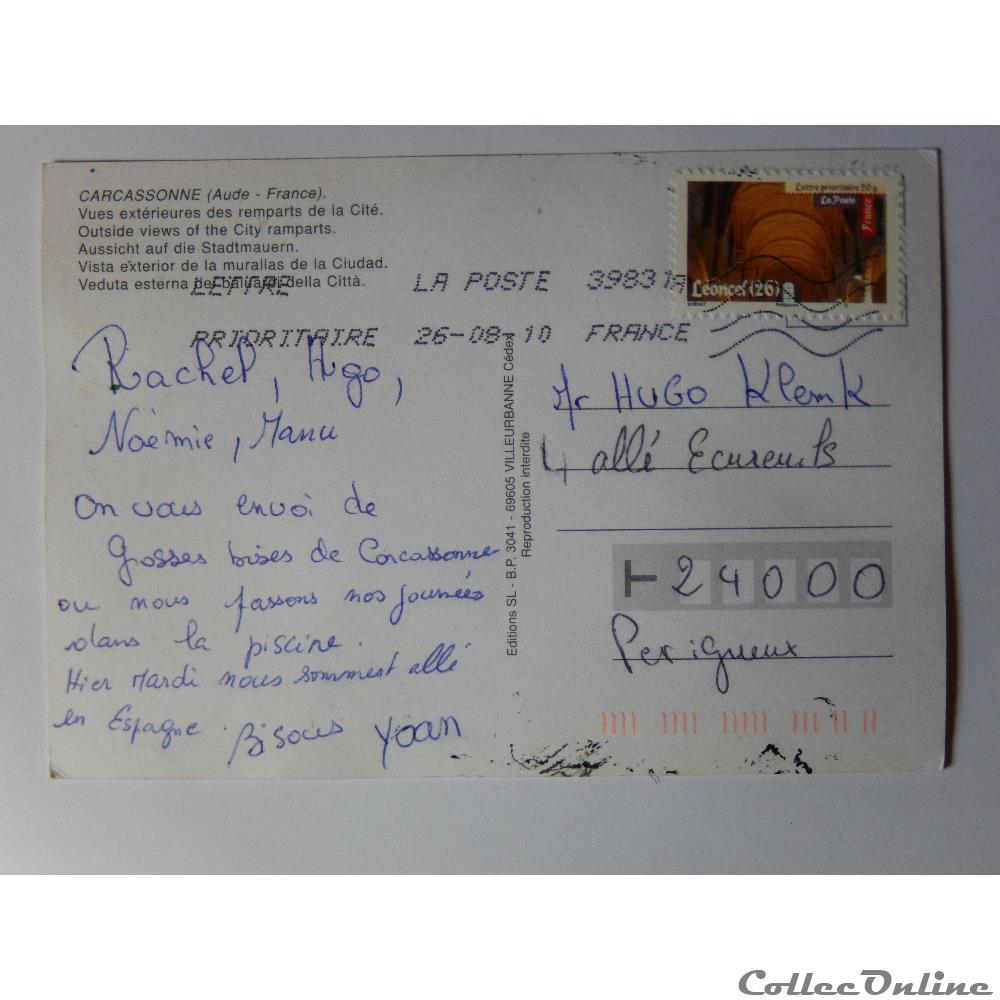 CARCASSONNE (Aude - France).
Vues extérieures des remparts de la Cité.
Outside views of the City ramparts.
Aussicht auf die Stadtmauern.
Vista exterior de la murallas de la Ciudad.
Veduta esterna dei baluardi della Città.
LETTRE LA POSTE 39831A
PRIORITAIRE 26-08-10 FRANCE
Lettre prioritaire 20g
La Poste
France
Léoncel (26)
Rachel, Hugo,
Noémie, Manu
On vous envoi de
Grosses bises de Carcassonne
ou nous passons nos journées
dans la piscine.
Hier Mardi nous somment allé
en Espagne. Bisous Yoan
Editions SL - B.P. 3041 - 69605 VILLEURBANNE Cédex
Reproduction interdite
Mr HUGO Klemk
4 allé Ecureuils
24000
Perigueux
CollecOnline